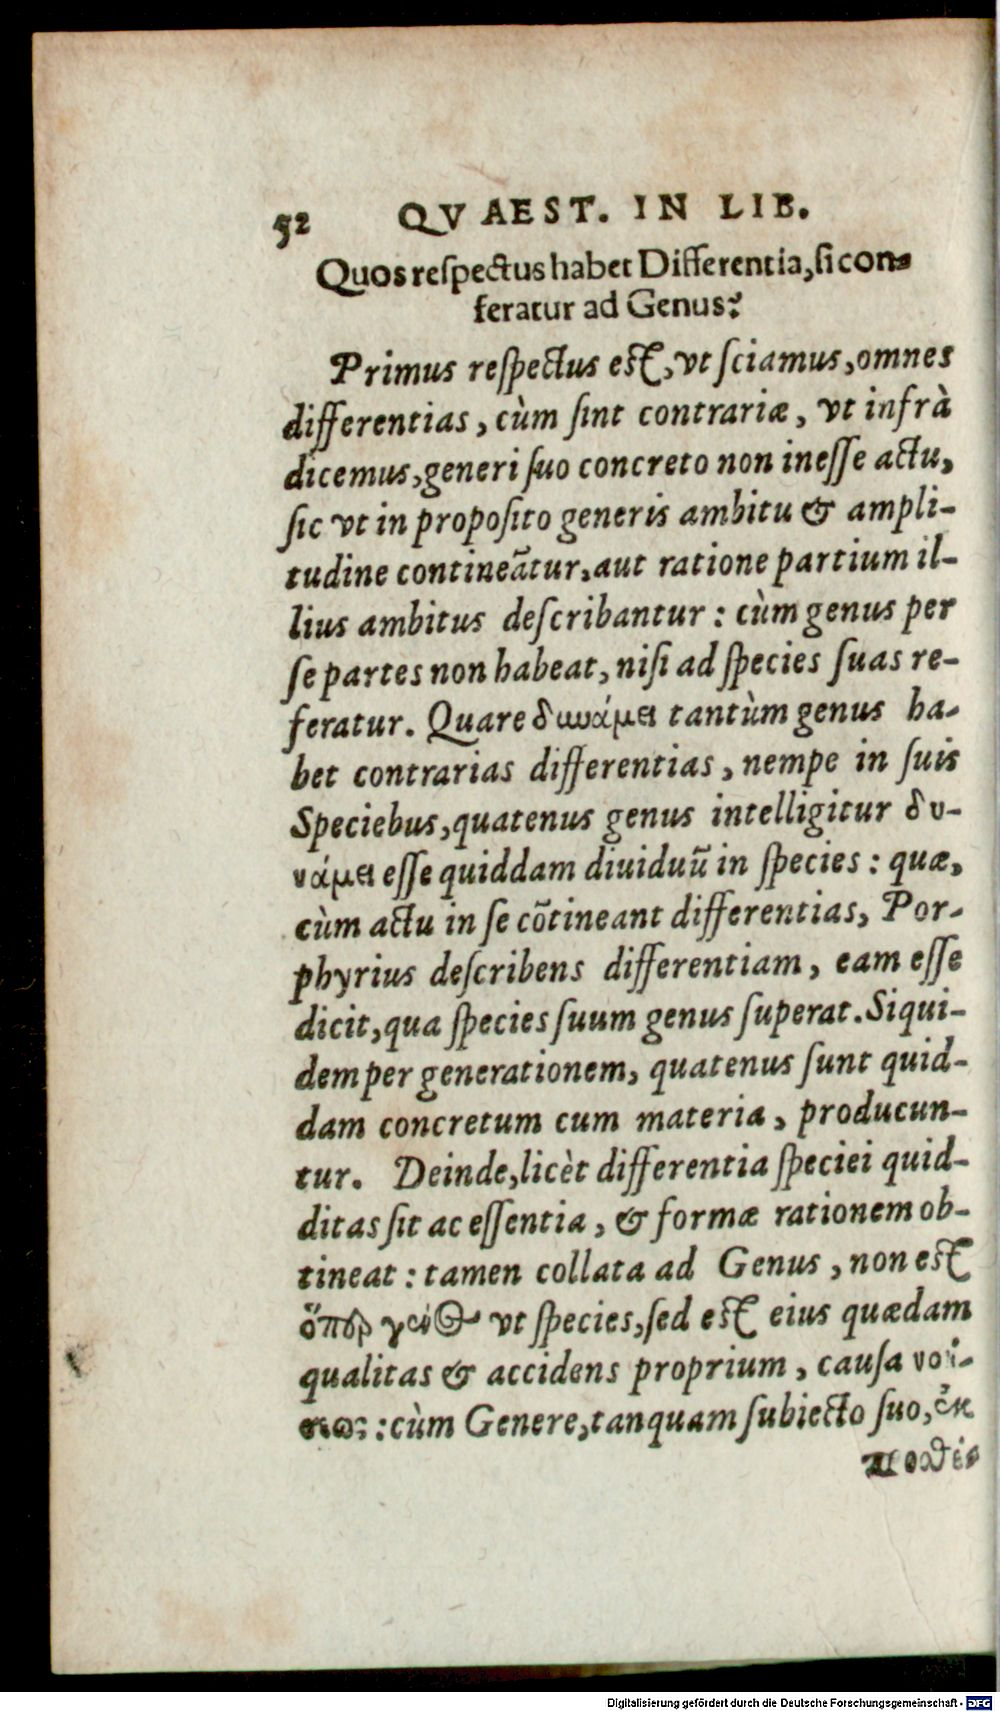 52 QVAEST. IN LIB.
Quos reſpectus habet Differentia, ſi con-
feratur ad Genus?
Primus reſpectus eſt, vt ſciamus, omnes
differentias, cùm ſint contrariæ, vt infrà
dicemus, generi ſuo concreto non ineſſe actu,
ſic vt in propoſito generis ambitu & ampli-
tudine contineãtur, aut ratione partium il-
lius ambitus deſcribantur: cùm genus per
ſe partes non habeat, niſi ad ſpecies ſuas re-
feratur. Quare δυνάμει tantùm genus ha-
bet contrarias differentias, nempe in ſuis
Speciebus, quatenus genus intelligitur δυ-
νάμει eſſe quiddam diuiduũ in ſpecies: quæ,
cùm actu in ſe cõtineant differentias, Por-
phyrius deſcribens differentiam, eam eſſe
dicit, qua ſpecies ſuum genus ſuperat. Siqui-
dem per generationem, quatenus ſunt quid-
dam concretum cum materia, producun-
tur. Deinde, licèt differentia ſpeciei quid-
ditas ſit ac eſſentia, & formæ rationem ob-
tineat: tamen collata ad Genus, non eſt
ὅπερ γένος vt ſpecies, ſed eſt eius quædam
qualitas & accidens proprium, cauſa
: cùm Genere, tanquam ſubiecto ſuo, ἐκ
Digitalisierung gefördert durch die Deutsche Forschungsgemeinschaft - DFG